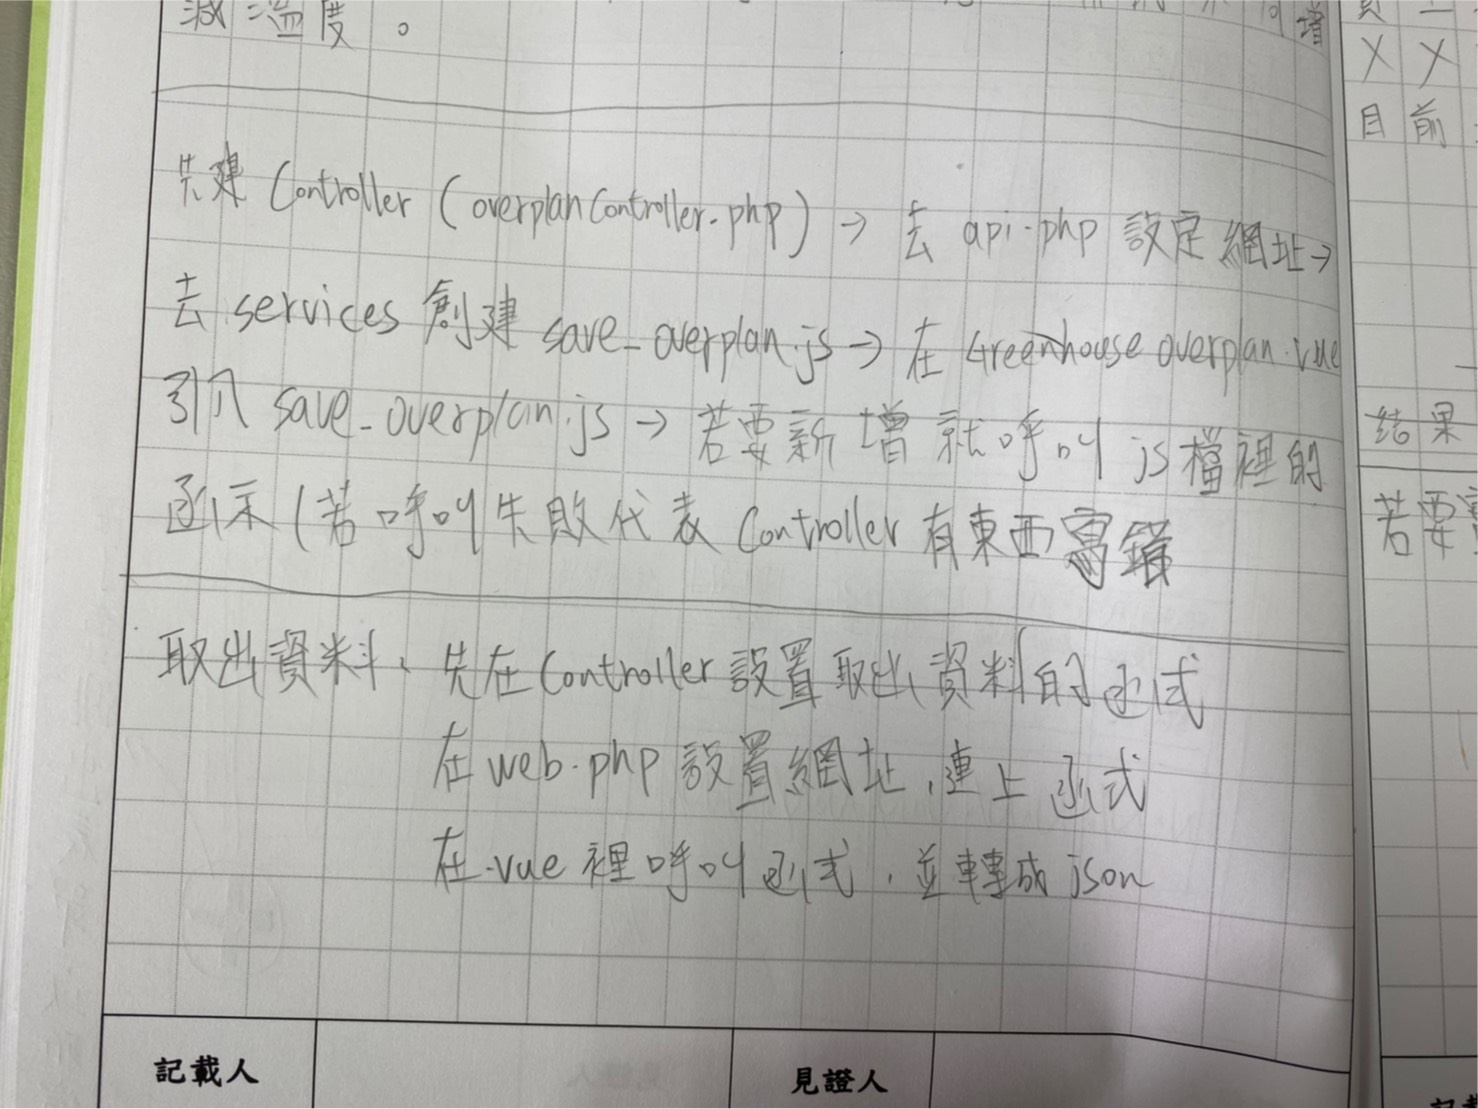 減溫度。
先建 Controller (overplanController.php) → 去 api.php 設定網址→
去 services 創建 save_overplan.js → 在 Greenhouse overplan.vue
引入 save_overplan.js → 若要新增就呼叫 js檔裡的
函示 (若呼叫失敗代表 Controller 有東西寫錯
取出資料、先在Controller 設置取出資料的函式
在 web.php 設置網址,連上函式
在.vue 裡呼叫函式,並轉成 json
記載人
見證人
增
X X
目前
結果
若要